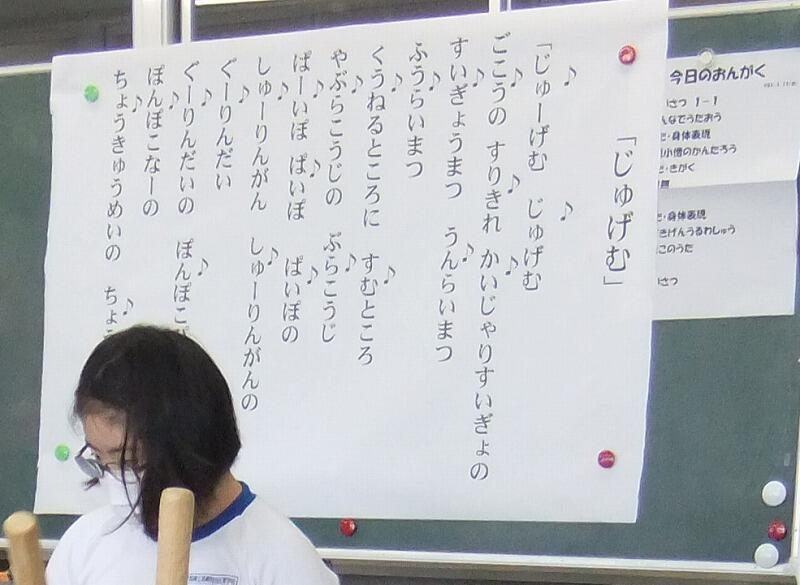 「じゅげむ」
「じゅーげむ じゅげむ
ごこうの すりきれ かいじゃりすいぎょの
すいぎょうまつ うんらいまつ
ふうらいまつ
くうねるところに すむところ
やぶらこうじの ぶらこうじ
ぱーいぽ ぱいぽ ぱいぽの
しゅーりんがん しゅーりんがんの
ぐーりんだい
ぐーりんだいの ぽんぽこ
ぽんぽこなーの
ちょうきゅうめいの ちょ
今日のおんがく
さつ 1-1
んなでうたおう
・身体表現
小僧のかんたろう
・きがく
・身体表現
きげんうるわしゅう
このうた
さつ